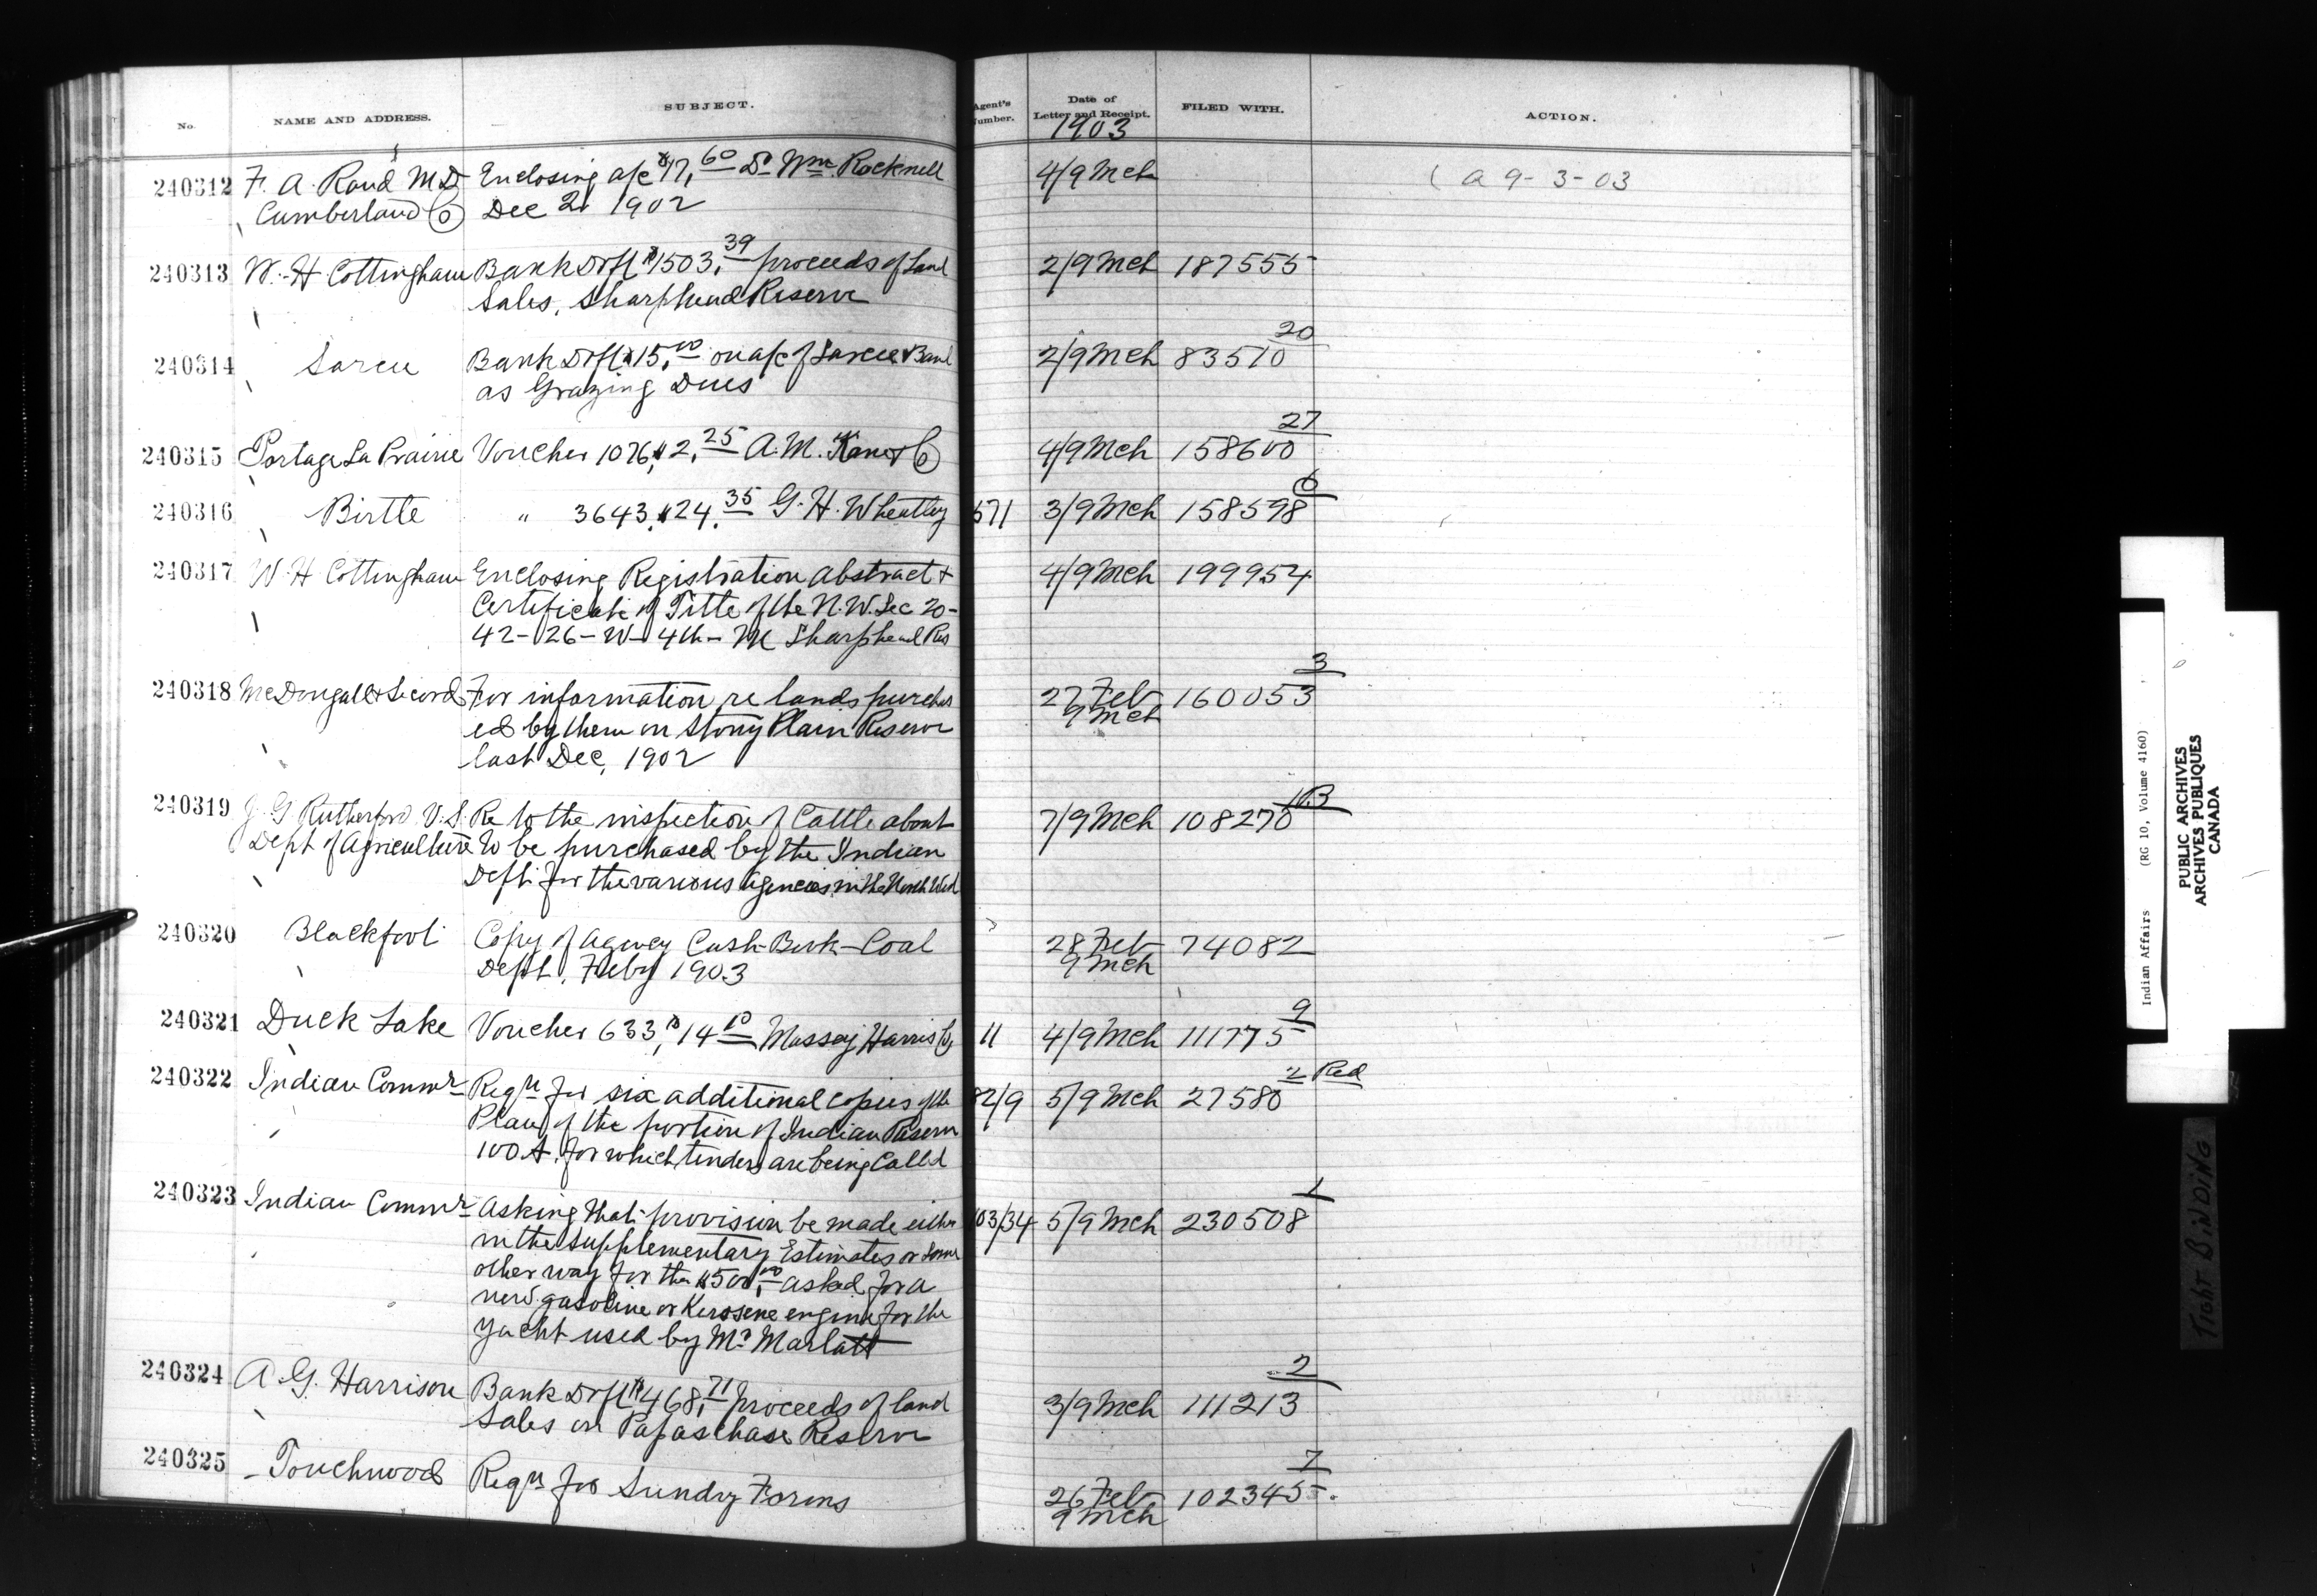 No. NAME AND ADDRESS. SUBJECT. Agent's Number. Date of Letter and Receipt. FILED WITH. ACTION.
1903
240312 F. A. Rand M.D. Enclosing a/c $17.60 Dr Wm. Rocknell 4/9 Mch ( a 9-3-03
Cumberland Co Dec 2. 1902
240313 W. H. Cottingham Bank Drft $1503.39 proceeds of Land 2/9 Mch 187555
Sales, Sharphead Reserve
20
240314 Sarcee Bank Drft $15.00 on a/c of Sarcee Band 2/9 Mch 83510
as Grazing Dues
27
240315 Portage La Prairie Voucher 1076, $2.25 A. M. Co 4/9 Mch 158600
6
240316 Birtle " 3643, $24.35 G. H. Wheatley 571 3/9 Mch 158598
240317 W. H. Cottingham Enclosing Registration Abstract & 4/9 Mch 199954
Certificate of Title of the N.W. Sec 20-
42-26-W-4th-M Sharphead Res
3
240318 McDougall & Secord For information re lands purchas 27 Feb 160053
ed by them on Stony Plain Reserve 9 Mch
last Dec. 1902
240319 J. G. Rutherford V.S. Re to the inspection of Cattle about 7/9 Mch 108270
Dept of Agriculture to be purchased by the Indian
Dept. for the various Agencies in the North West
240320 Blackfoot Copy of Agency Cash-Book-Coal 28 Feb 74082
Dept. Feby 1903 9 Mch
9
240321 Duck Lake Voucher 633, $14.10 Massey Harris Co 11 4/9 Mch 111775
2 Red
240322 Indian Commr Reqn for six additional copies of the 82/9 5/9 Mch 27580
Plan of the portion of Indian Reserve
100A. for which tenders are being Called
1
240323 Indian Commr Asking that provision be made either 103/34 5/9 Mch 230508
in the Supplementary Estimates or some
other way for the $500.00 asked for a
new gasoline or Kerosene engine for the
Yacht used by Mr Marlatt
2
240324 A. G. Harrison Bank Drft $468.71 proceeds of land 3/9 Mch 111213
Sales on Papaschase Reserve
7
240325 Touchwood Reqn for Sundry Forms 26 Feb 102345
9 Mch
Indian Affairs (RG 10, Volume 4160)
PUBLIC ARCHIVES
ARCHIVES PUBLIQUES
CANADA
TIGHT BINDING